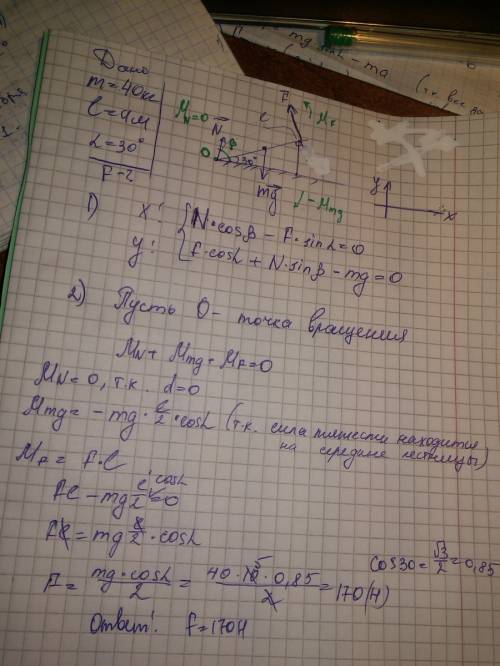 Дано
m = 40кг
l = 4м
α = 30°
F - ?
M_N = 0
N
O
β
30°
mg
F
l
↑ M_F
↓ - M_mg
y
x
1) x: { N·cosβ - F·sinα = 0
y: { F·cosα + N·sinβ - mg = 0
2) Пусть O - точка вращения
M_N + M_mg + M_F = 0
M_N = 0, т.к. d = 0
M_mg = - mg · l/2 · cosα (т.к. сила тяжести находится
на середине лестницы)
M_F = F·l
Fl - mg l/2 cosα = 0
Fl = mg l/2 · cosα
F = mg·cosα/2 = 40·10·0,85/2 = 170(Н)
cos30 = √3/2 = 0,85
Ответ: F = 170Н